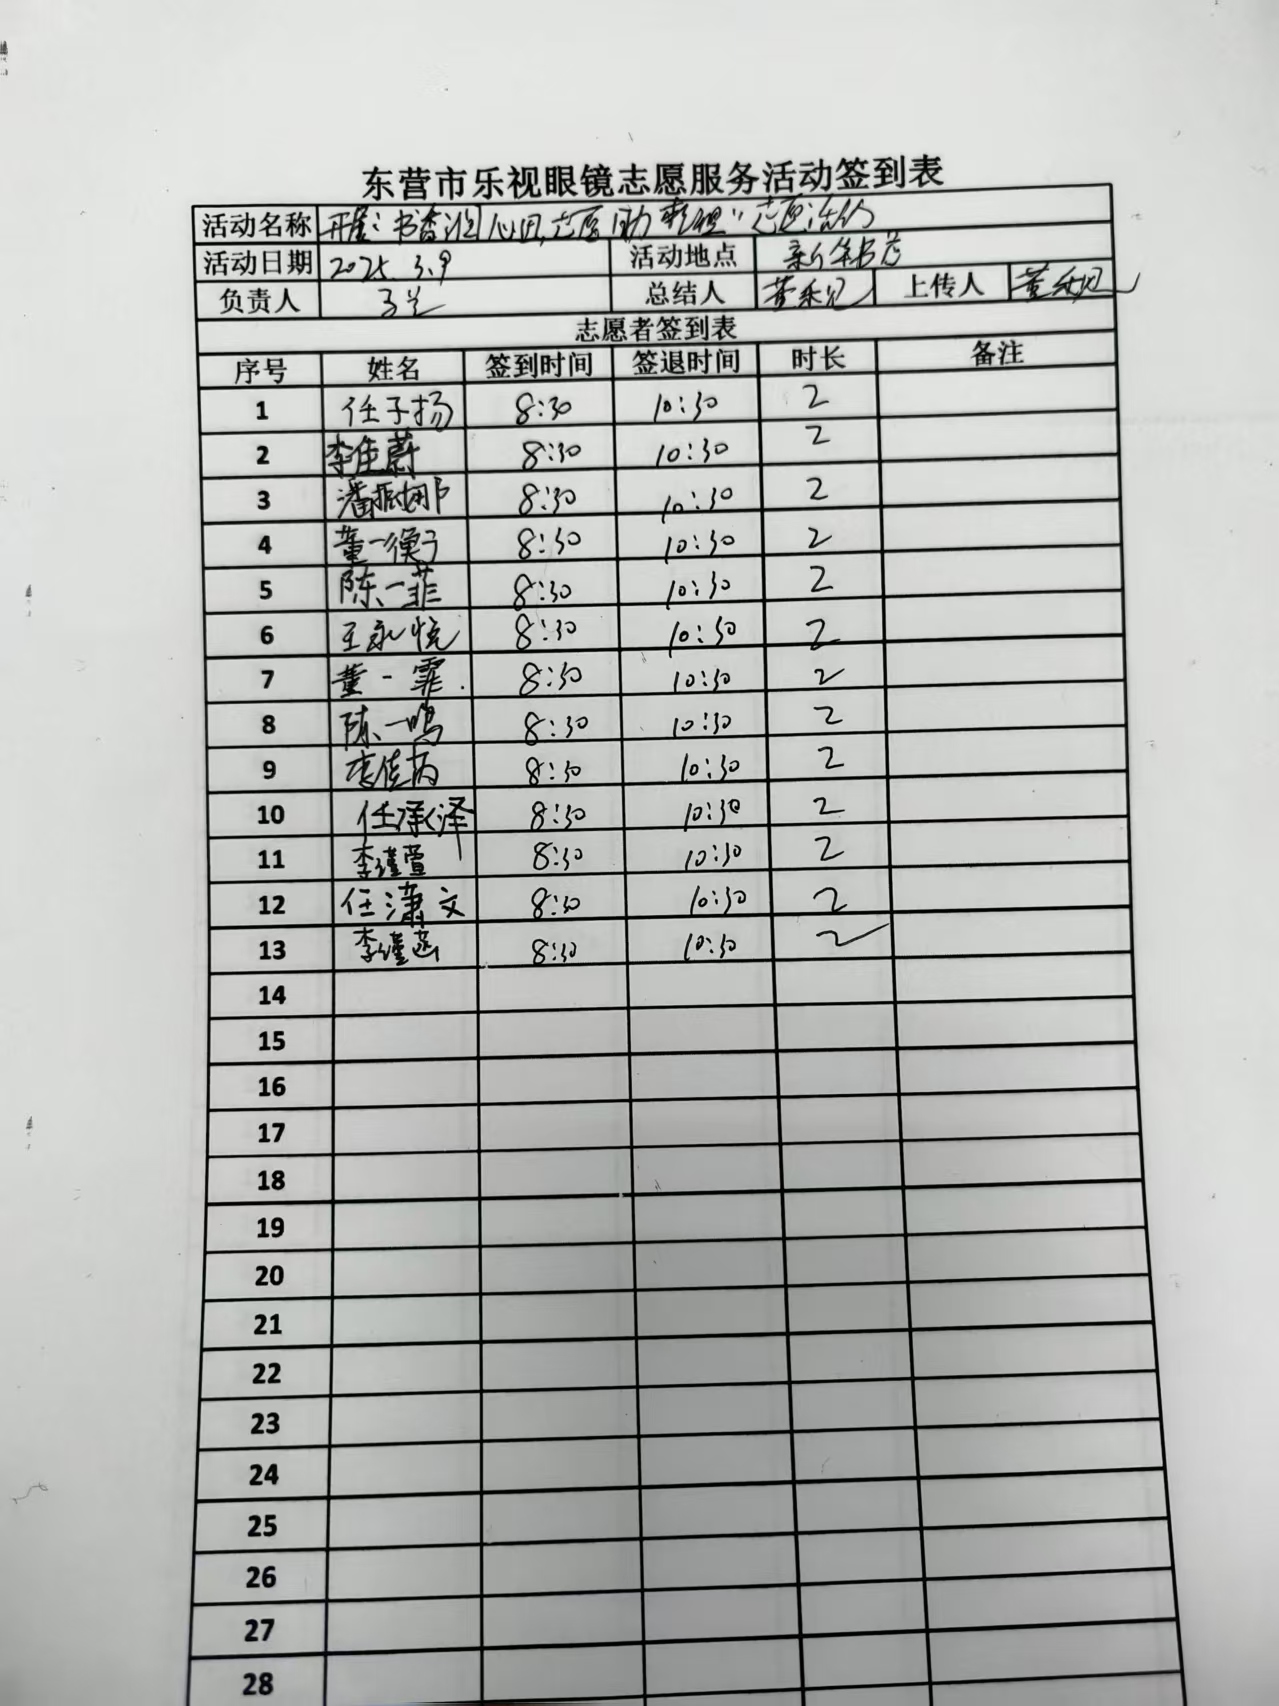 东营市乐视眼镜志愿服务活动签到表
活动名称 开展:书香润心田,志愿助整理"志愿活动
活动日期 2025.3.9 活动地点 新华书店
负责人 总结人 董乐见 上传人 董乐见
志愿者签到表
序号 姓名 签到时间 签退时间 时长 备注
1 任子扬 8:30 10:30 2
2 李佳蔚 8:30 10:30 2
3 潘振娜 8:30 10:30 2
4 董一衡 8:30 10:30 2
5 陈一菲 8:30 10:30 2
6 王永悦 8:30 10:30 2
7 董一霏 8:30 10:30 2
8 陈一鸣 8:30 10:30 2
9 李佳芮 8:30 10:30 2
10 任承泽 8:30 10:30 2
11 李瑾萱 8:30 10:30 2
12 任潇文 8:30 10:30 2
13 李瑾菡 8:30 10:30 2
14
15
16
17
18
19
20
21
22
23
24
25
26
27
28